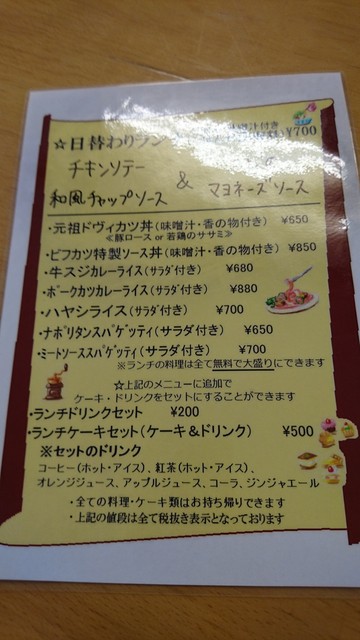 ☆日替わりラン 味噌汁付き ¥700
チキンソテー
和風チャップソース & マヨネーズソース
・元祖ドヴィカツ丼(味噌汁・香の物付き) ¥650
≪豚ロース or 若鶏のササミ≫
・ビフカツ特製ソース丼(味噌汁・香の物付き) ¥850
・牛スジカレーライス(サラダ付き) ¥680
・ポークカツカレーライス(サラダ付き) ¥880
・ハヤシライス(サラダ付き) ¥700
・ナポリタンスパゲッティ(サラダ付き) ¥650
・ミートソーススパゲッティ(サラダ付き) ¥700
※ランチの料理は全て無料で大盛りにできます
☆上記のメニューに追加で
ケーキ・ドリンクをセットにすることができます
・ランチドリンクセット ¥200
・ランチケーキセット(ケーキ&ドリンク) ¥500
※セットのドリンク
コーヒー(ホット・アイス)、紅茶(ホット・アイス)、
オレンジジュース、アップルジュース、コーラ、ジンジャエール
・全ての料理・ケーキ類はお持ち帰りできます
・上記の値段は全て税抜き表示となっております